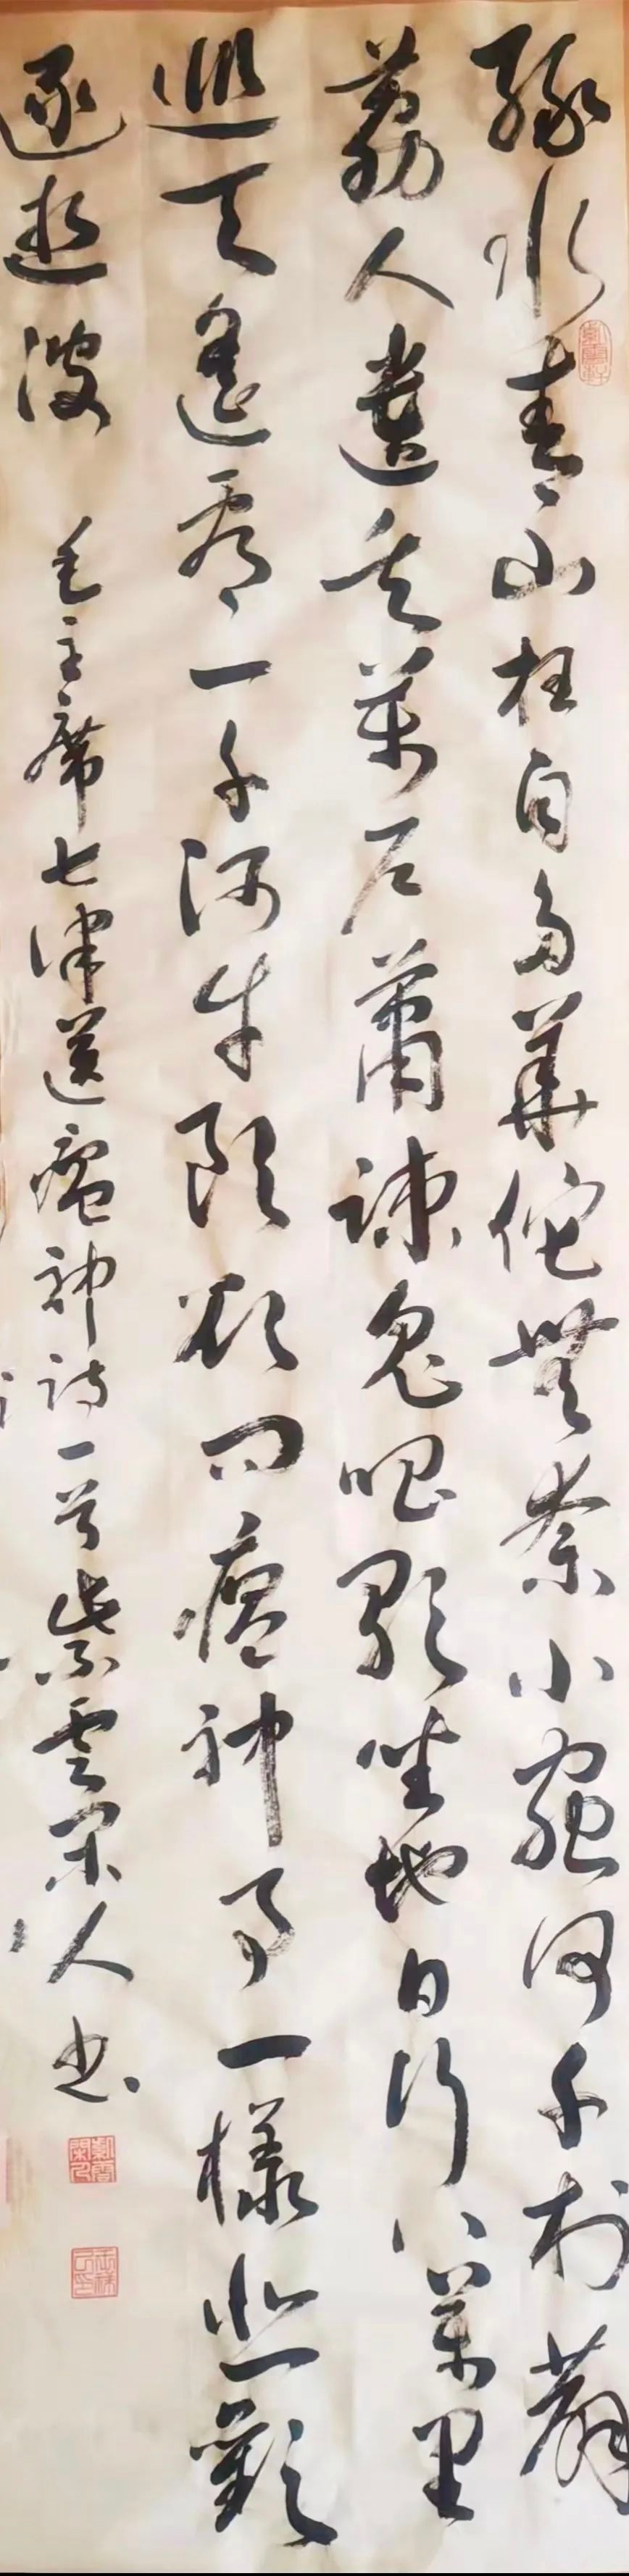 綠水青山枉自多華佗無奈小蟲何千村薜
荔人遺矢萬户蕭疎鬼唱歌坐地日行八萬里
巡天遙看一千河牛郎欲問瘟神事一樣悲歡
逐逝波
毛主席七律送瘟神詩一首紫雲閑人书